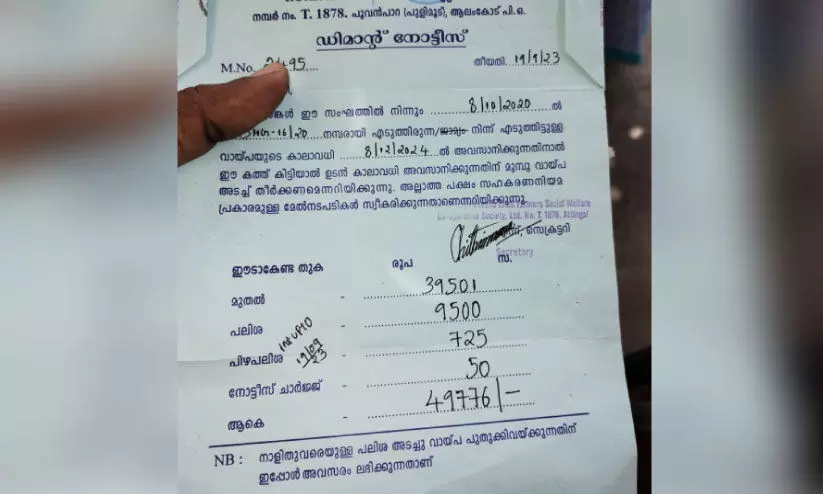 നമ്പർ നം. T. 1878. പൂവൻപാറ (പുളിമൂട്), ആലംകോട് പി.ഒ.
ഡിമാന്റ് നോട്ടീസ്
M.No. 495 തീയതി. 19/9/23
ഈ സംഘത്തിൽ നിന്നും 8/10/2020 ൽ
16/20 നമ്പരായി എടുത്തിരുന്ന/ജാമ്യം നിന്ന് എടുത്തിട്ടുള്ള
വായ്പയുടെ കാലാവധി 8/12/2024 ൽ അവസാനിക്കുന്നതിനാൽ
ഈ കത്ത് കിട്ടിയാൽ ഉടൻ കാലാവധി അവസാനിക്കുന്നതിന് മുമ്പു വായ്പ
അടച്ച് തീർക്കണമെന്നറിയിക്കുന്നു. അല്ലാത്ത പക്ഷം സഹകരണനിയമ
പ്രകാരമുള്ള മേൽനടപടികൾ സ്വീകരിക്കുന്നതാണെന്നറിയിക്കുന്നു.
Farmers Social Welfare
Co-operative Society, Ltd. No: T. 1878, Attingal
സെക്രട്ടറി
Secretary
ഈടാകേണ്ട തുക രൂപ സ.
മുതൽ - 39501
പലിശ - 9500
പിഴപലിശ Int UPTO 19/09/23 - 725
നോട്ടീസ് ചാർജ്ജ് - 50
ആകെ - 49776/-
NB : നാളിതുവരെയുള്ള പലിശ അടച്ചു വായ്പ പുതുക്കിവയ്ക്കുന്നതിന്
ഇപ്പോൾ അവസരം ലഭിക്കുന്നതാണ്